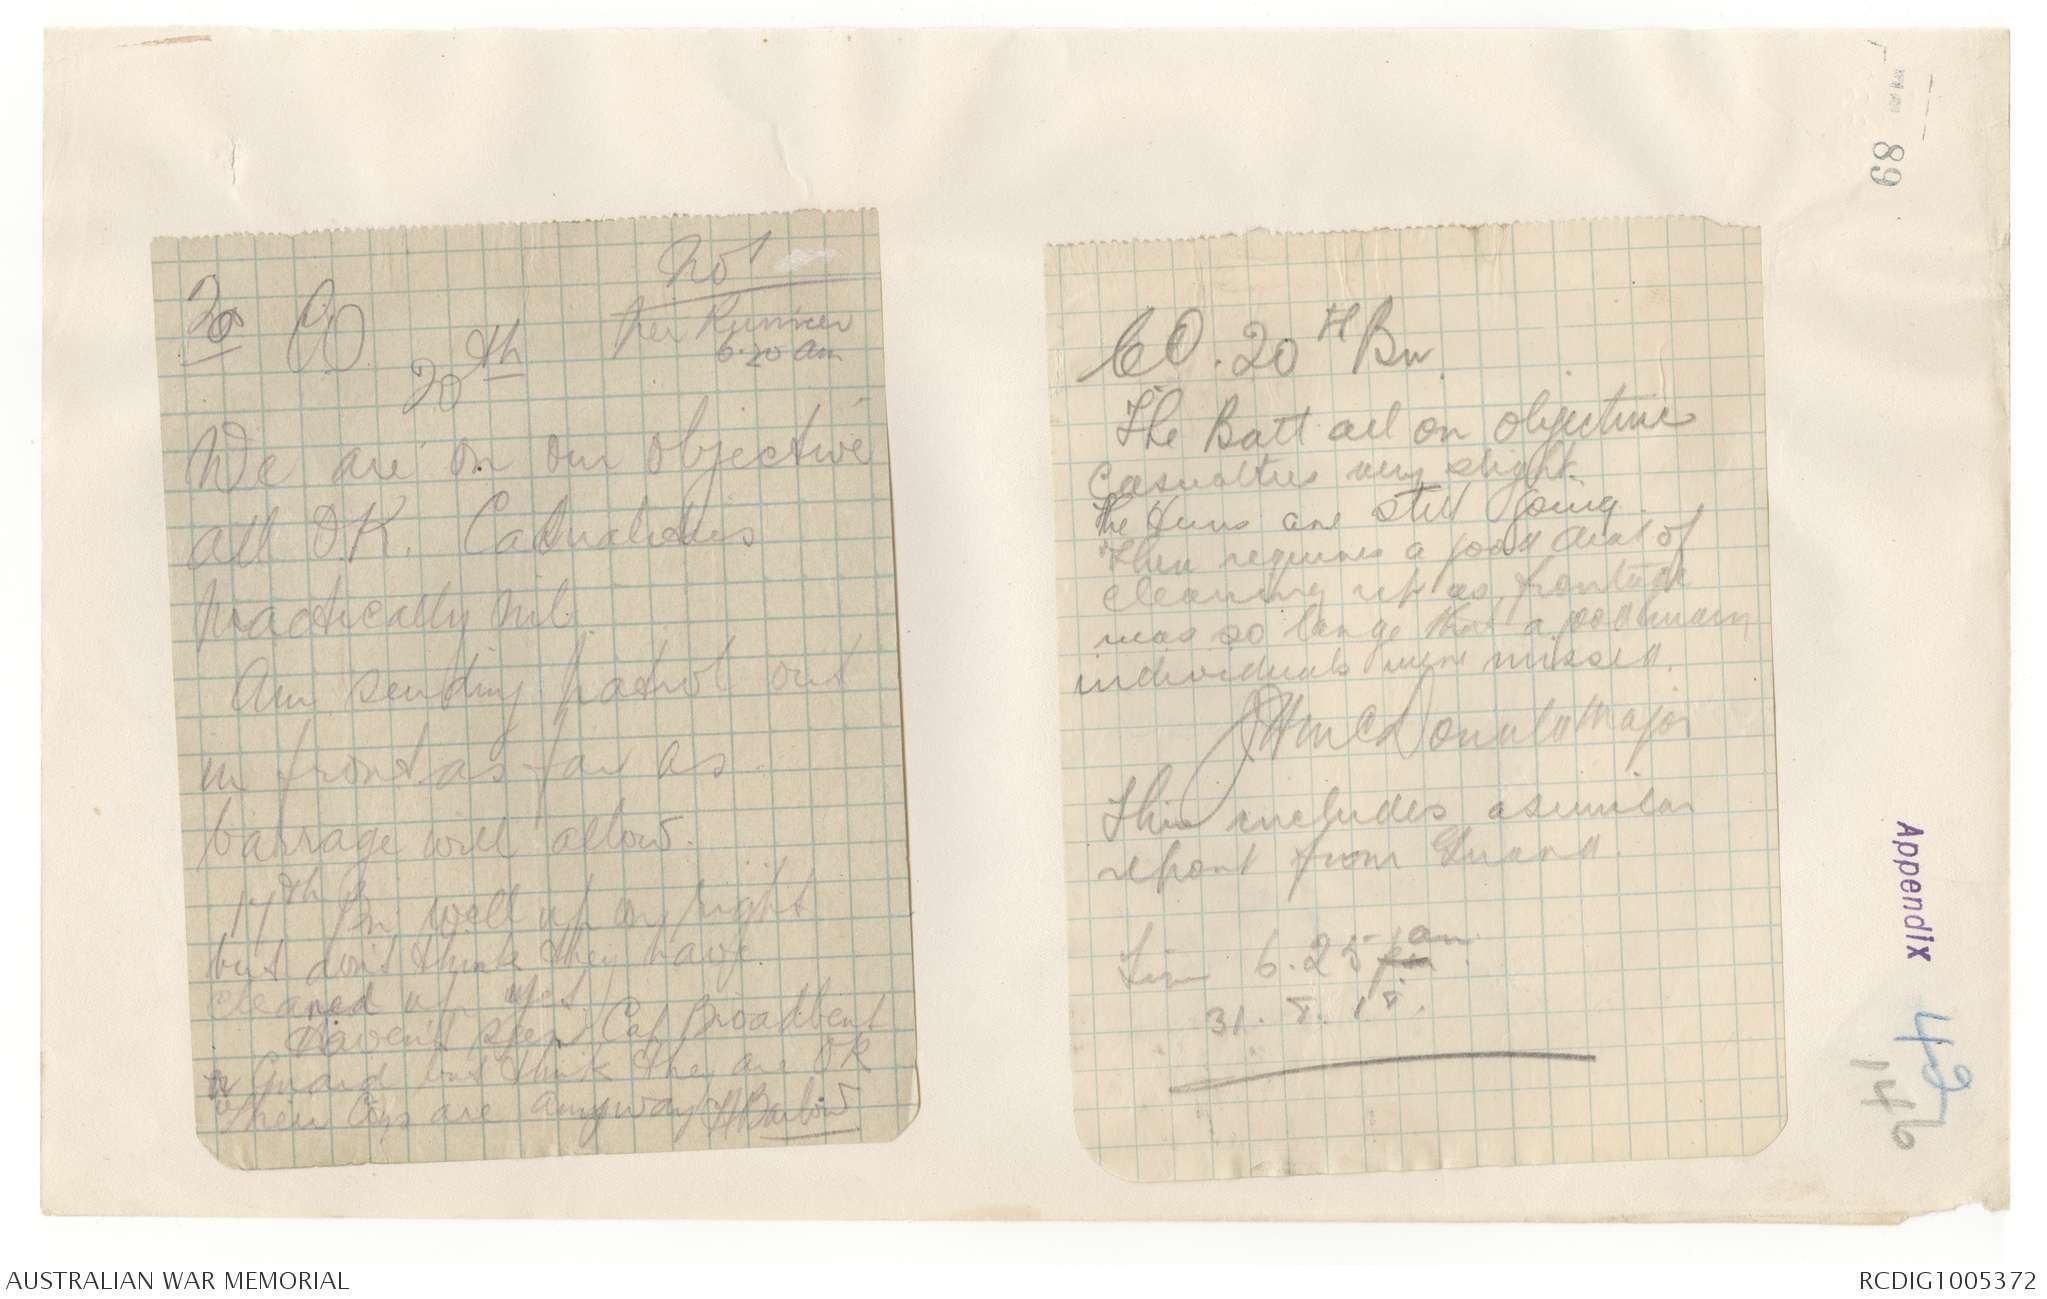 No 1
To CO
Per Runner
6.20 am
20th
We are on our objective
all OK. Casualties
practically nil
Am sending patrol out
in front as far as
barrage will allow.
17th Bn well up on right
but don't think they have
cleaned up yet
Haven't seen Cap Broadbent
or Guard but think they are OK
Their Coys are anyway HBarlow
CO. 20th Bn.
The Batt all on objective
casualties very slight
The Huns are still going.
There requires a good deal of
cleaning up as frontage
was so large that a good many
individuals were missed.
McDonald Major
This includes a similar
report from Guard.
Time 6.25 pm am
31. 8. 18.
89
Appendix
43
146
AUSTRALIAN WAR MEMORIAL
RCDIG1005372